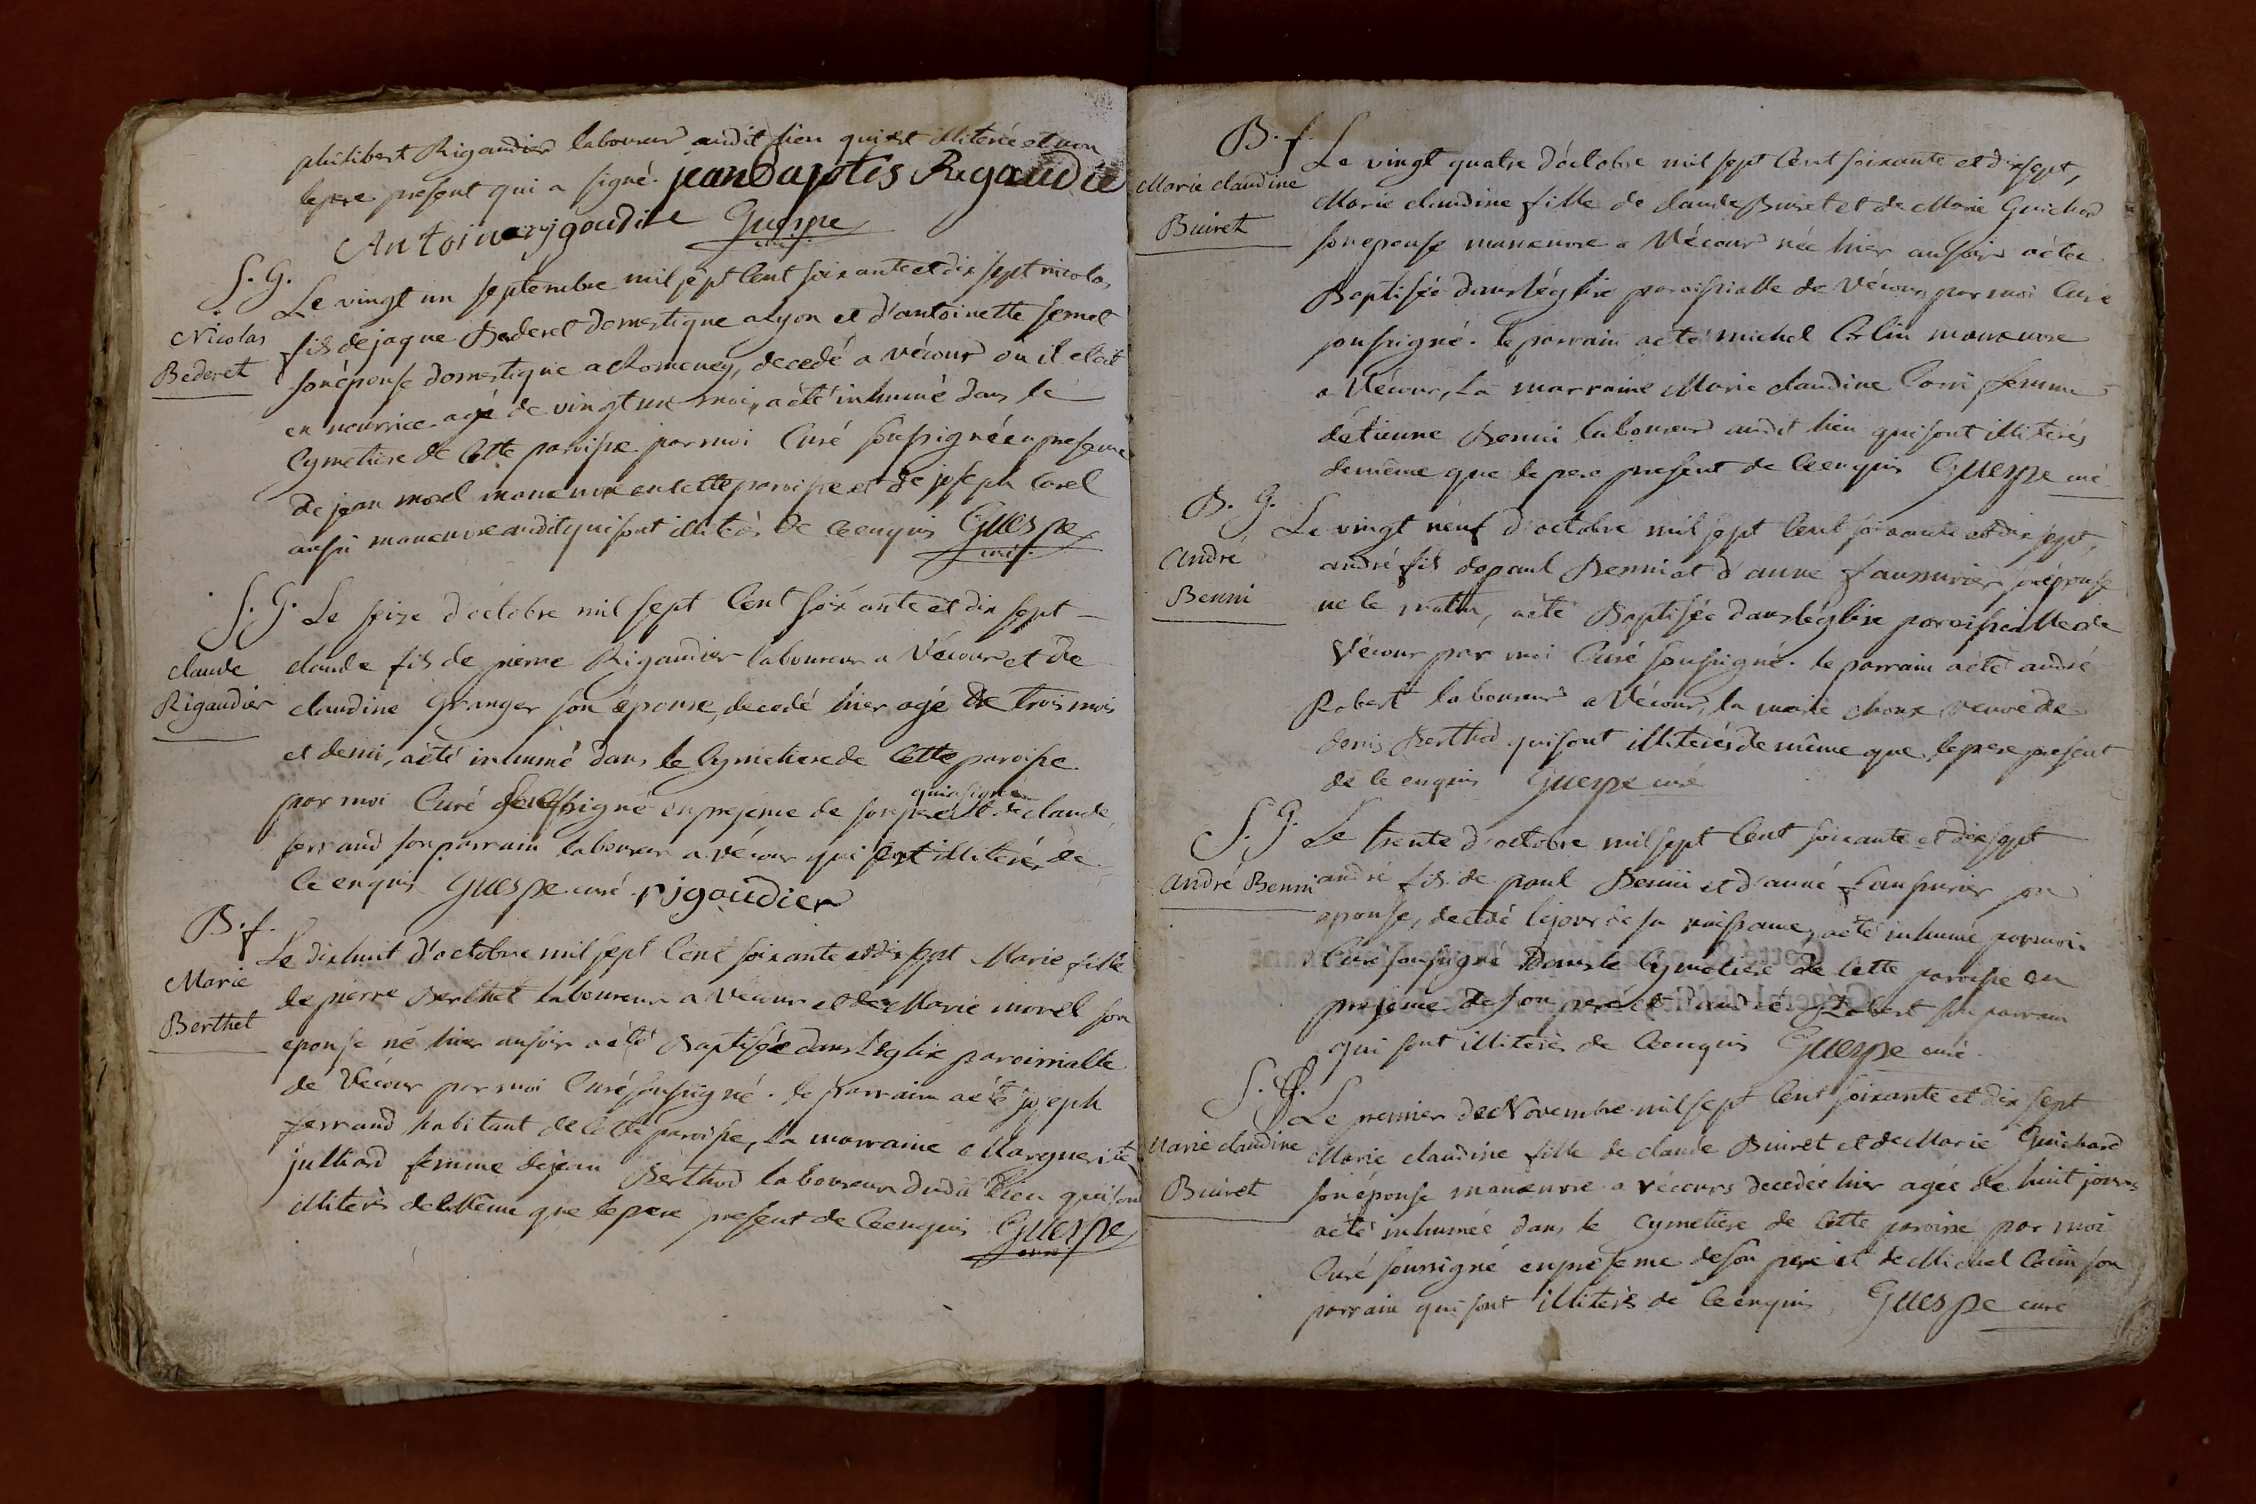 philibert Rigaudier laboureur audit lieu qui est illiteré et non
le pere present qui a signé. jean Baptis Rigaudie
Antoine rigaudie Guespe
curé
S. G.
Nicolas
Bederet
Le vingt un septembre mil sept Cent soixante et dix sept nicolas
fils de jaque Bederet domestique a Lyon et d'antoinette semet
son épouse domestique a Romeney, decedé a vécour ou il etoit
en nourrice agé de vingt un mois, a été inhumé dans le
Cymetiere de Cette paroisse par moi Curé soussigné en presence
de jean morel manœuvre en cette paroisse et de joseph Carel
aussi manœuvre audit qui sont illiterés de Ce enquis Guespe
curé
S. G.
claude
Rigaudier
Le seize d'octobre mil sept Cent soixante et dix sept
claude fils de pierre Rigaudier laboureur a Vécour et de
claudine Granger son épouse, decedé hier agé de trois mois
et demi, a été inhumé dans le Cymetiere de Cette paroisse
par moi Curé soussigné en presence de son pere qui a signé et de claude
ferrand son parrain laboureur a vécour qui est illiteré de
Ce enquis Guespe curé rigaudier
B. f.
Marie
Berthet
Le dix huit d'octobre mil sept Cent soixante et dix sept Marie fille
de pierre Berthet laboureur a Vécour et de Marie morel son
epouse né hier au soir a été Baptisée dans l'église paroissialle
de Vécour par moi Curé soussigné. le Parrain a été joseph
ferrand habitant de Cette paroisse, la marraine Marguerite
julliard femme de jean Berthod laboureur dudit lieu qui sont
illiterés de Même que le pere present de Ce enquis Guespe
curé
B. f.
Marie claudine
Buiret
Le vingt quatre d'octobre mil sept Cent soixante et dix sept,
Marie claudine fille de claude Buiret et de Marie Guichard
son epouse manœuvre a Vécour née hier au soir a été
Baptisée dans l'église paroissialle de Vécour par moi Curé
soussigné. le parrain a été michel Colin manœuvre
a Vécour, La marraine Marie claudine Carri femme
d'étienne Benni laboureur audit lieu qui sont illiterés
de même que le pere present de Ce enquis Guespe curé
B. G.
André
Benni
Le vingt neuf d'octobre mil sept Cent soixante et dix sept,
andré fils de paul Benni et d'anne faussurier son épouse
né le matin, a été Baptisée dans l'église paroissialle de
Vécour par moi Curé soussigné. le parrain a été andré
Robert laboureur a Vécour, la marie choux veuve de
denis Berthod qui sont illiterés de même que le pere present
de Ce enquis Guespe curé
S. G.
André Benni
Le trente d'octobre mil sept Cent soixante et dix sept
andré fils de paul Benni et d'anne faussurier son
epouse, decedé le jour de sa naissance, a été inhumé par moi
Curé soussigné Dans le Cymetiere de Cette paroisse en
presence de son pere et d'andré Robert son parrain
qui sont illiterés de Ce enquis Guespe curé.
S. f.
Marie claudine
Buiret
Le premier de Novembre mil sept Cent soixante et dix sept
Marie claudine fille de claude Buiret et de Marie Guichard
son épouse manœuvre a vécours decedée hier agée de huit jours
a été inhumée dans le Cymetiere de Cette paroisse par moi
Curé soussigné en presence de son pere et de Michel Colin son
parrain qui sont illiterés de Ce enquis, Guespe curé